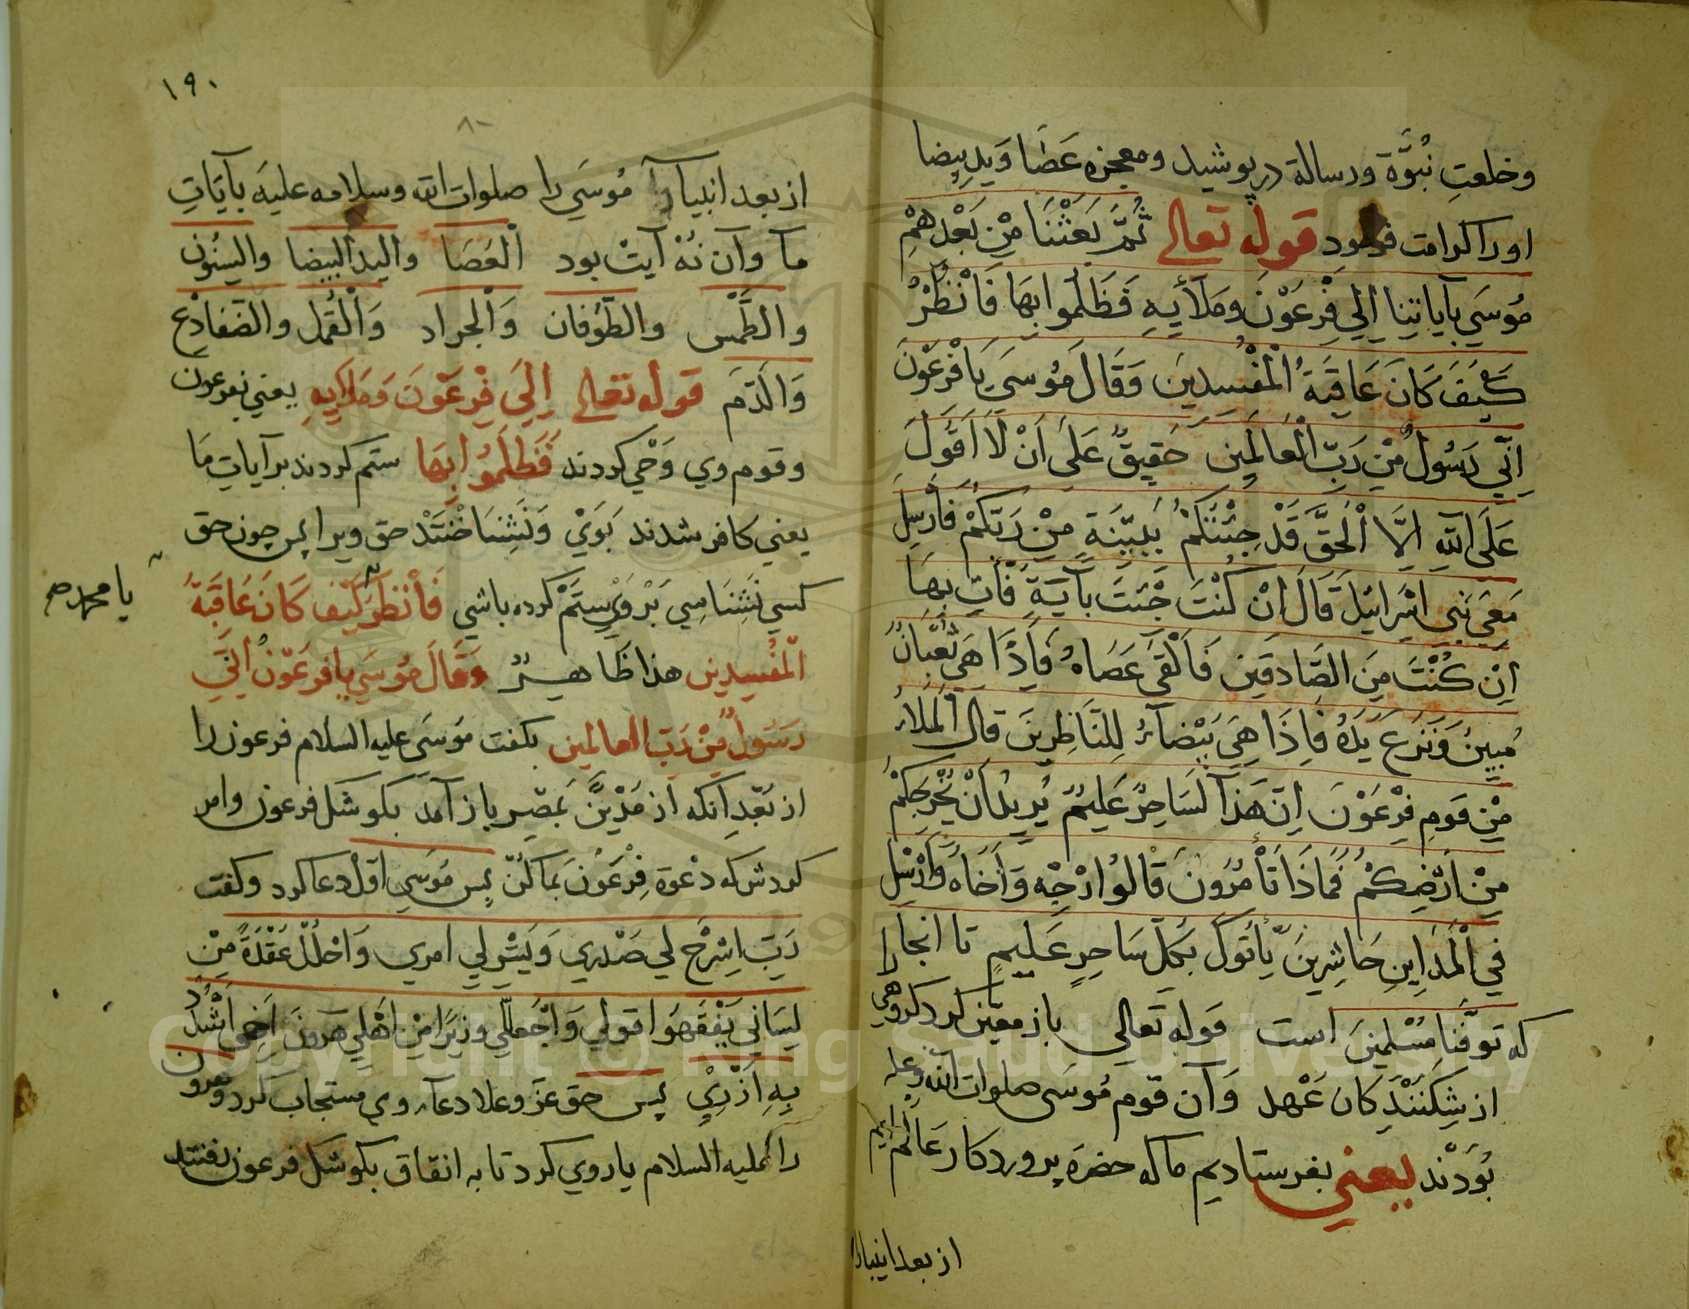 وخلعتِ نُبُوَّة ورسالة در پوشید ومعجزه عَصَا وَیدِ بیضا
او را کرامت فرمود قوله تعالى ثُمَّ بَعَثْنَا مِنْ بَعْدِهِمْ
مُوسَي بآياتِنا إلي فِرْعَوْنَ ومَلَأيِهِ فَظَلَمُوا بِهَا فَانْظُرْ
كَيْفَ كَانَ عَاقِبَةُ الْمُفْسِدِينَ وَقَالَ مُوسَيَ يَا فْرْعَوْنَ
اِنِّي رَسُولٌ مِّنْ رَبِّ الْعَالَمِينَ حَقِيقٌ عَلَيَ اَنْ لَا اَقُولَ
عَلَيَ اللَّهِ اِلَّا الْحَقَّ قَدْ جِئْتُكُمْ بِبَيِّنَةٍ مِنْ رَبِّكُمْ فَارْسِلْ
مَعِيَ بَنِي اسْرَائِيلَ قَالَ اِنْ كُنْتَ جِئْتَ بِآيَةٍ فَأْتِ بِهَا
اِنْ كُنْتَ مِنَ الصَّادِقِينَ فَاَلْقَيَ عَصَاهُ فَاِذَا هِيَ ثُعْبَانٌ
مُبِينٌ وَنَزَعَ يَدَهُ فَاِذَا هِيَ بَيْضَآءُ لِلنَّاظِرِينَ قَالَ الْمَلَاءُ
مِنْ قَومِ فِرْعَوْنَ اِنَّ هَذَا لَسَاحِرٌ عَلِيمٌ يُرِيدُ اَنْ يُخْرِجَكُمْ
مِنْ اَرْضِكُمْ فَمَاذَا تَأْمُرُونَ قَالُوا ارْجِهْ وَاَخَاهُ وَارْسِلْ
فِي الْمَدَايِنِ حَاشِرِينَ يَأتُوكَ بِكُلِّ سَاحِرٍ عَلِيمٍ تا انجا را
که تَوَفَّنَا مُسْلِمِينَ است قوله تعالى باز معین کرد کروهي
از شِکَنَنْدِکان عَهْد وَآن قوم مُوسَي صلوات الله وعليه
بُودَنْد يعني بفرستاديم ما که حضرة پروردکار عَالَمِ
از بعد انبیارا
١٩٠
از بعد انبیارا مُوسَي را صلوات الله وسلامه عليه بآیَاتِ
مآ وآن نُهْ آیتْ بود الْعَصَا واليد البیضا والسنون
والطَّمْس والطُّوفَان وَالْجراد وَالْقُمل والضفادع
وَالدَّمَ قوله تعالى إلَيَ فِرْعَوْنَ وَمَلَایِهِ يعني بفرعون
وقوم وي وَحْي کردند فَظَلَمُوا بِهَا ستم کردند بر آیاتِ مَا
يعني کافر شدند بَوَيْ وَنَشِنَاخْتَنْد حق ویرا پس چون حق
کسي نَشِنَاسِي بَرْ وَيْ سِتَمْ کرده باشي فَانْظُرْ كَيْفَ كَانَ عَاقِبَةُ
یا محمد ص
الْمُفْسِدِينِ هذا ظَاهِرٌ وَقَالَ مُوسَي يا فرعَوْنُ انِّي
رَسُولٌ مِّنْ رَبّ العالمين بکفت مَوسَي عليه السلام فرعون را
از بَعْدِ آنکه از مَدْيَنْ بَمِصِر باز آمد بکوشک فرعون وامر
کردش که دَعْوَةِ فِرْعَوْنَ بَمَا کُنْ پس مُوسَي اوّل دعا کرد وکفت
رَبِّ اِشْرَحْ لِي صَدْرِي وَيَسِّرْ لِي امري وَاحْلُلْ عقْدَةً مِنْ
لِسَانِي يَفْقَهُوا قولي وَاجْعَلْ لي وزِيرًا مِنْ اَهْلِي هَرُونَ اَخِي اشْدُدْ
بِهِ اَزْرِيْ پس حق عَزَّ وعلا دعآء وي مستجاب کرد وهرون
را عليه السلام یاروي کرد تا به اتفاق بکوشك فرعون رفتند